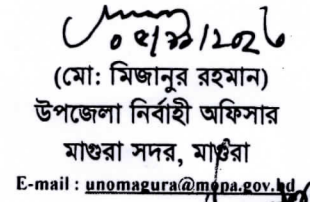 (মো: মিজানুর রহমান)
উপজেলা নির্বাহী অফিসার
মাগুরা সদর, মাগুরা
E-mail : unomagura@mopa.gov.bd